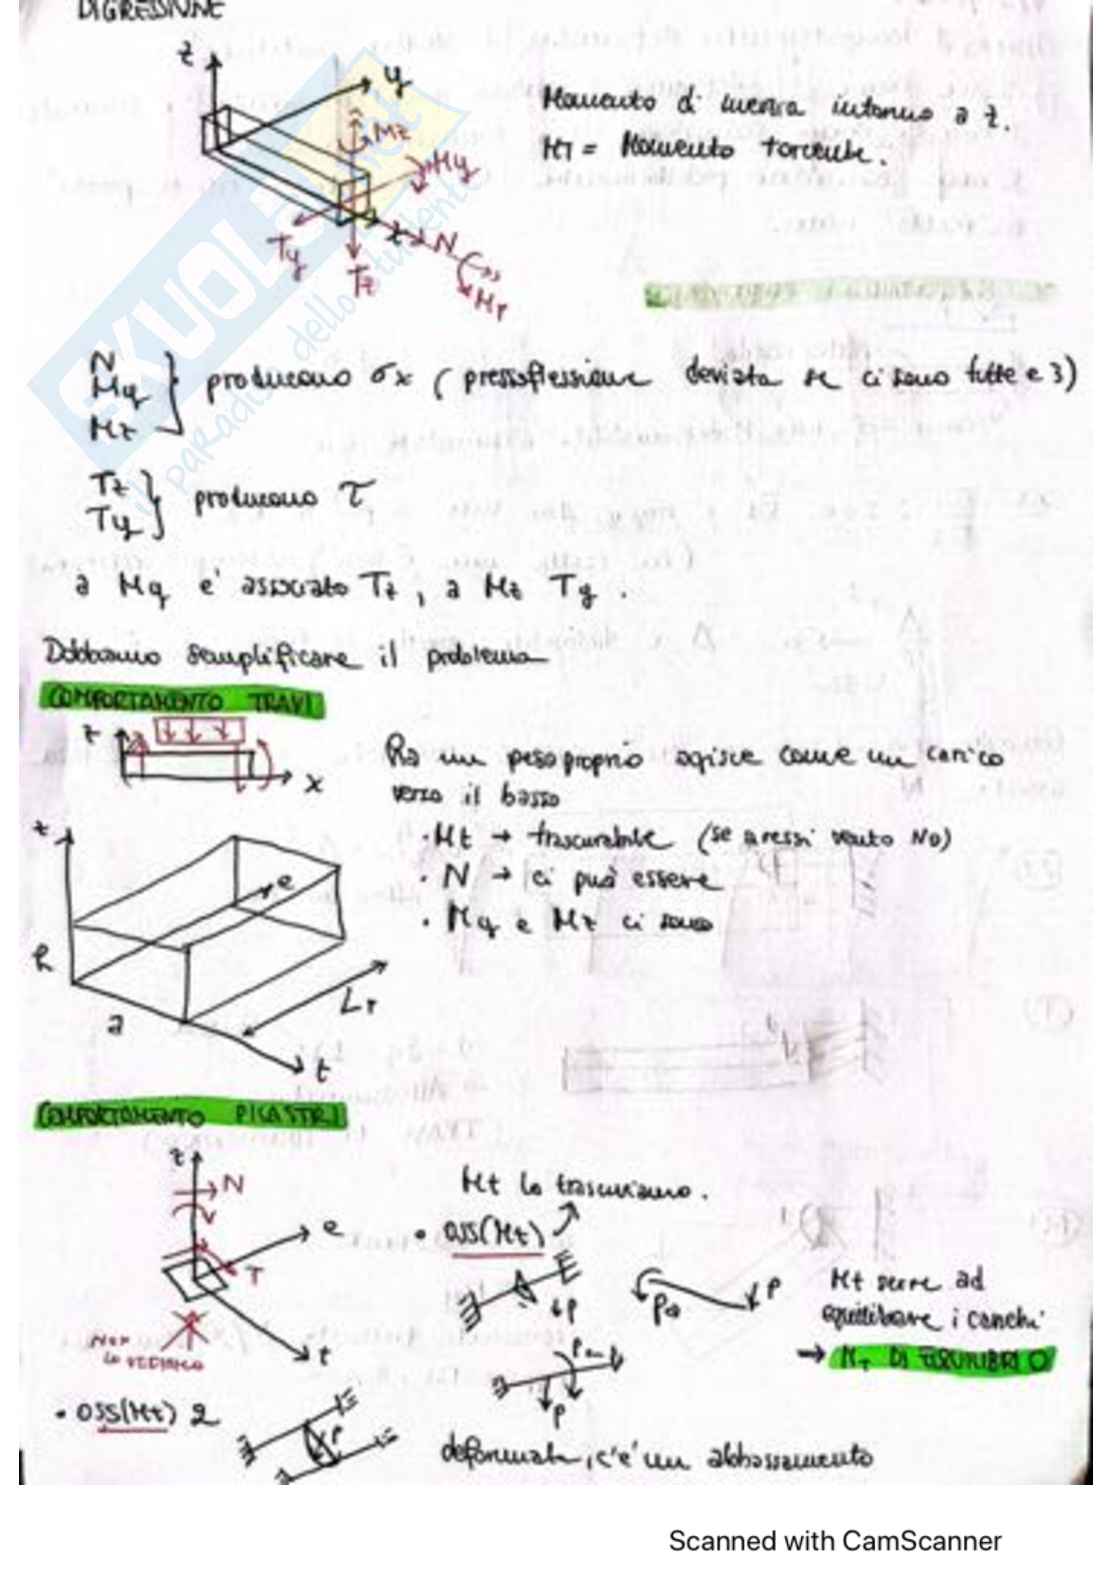 DIGRESSIONE
z
y
Momento di inerzia intorno a z.
Mz
My
MT = Momento torcente.
Ty
Tz
N
MT
SKUOLA.net
il paradiso dello studente
N
My
Mz
producono σx (pressoflessione deviata se ci sono tutte e 3)
Tz
Ty
producono τ
a My e' associato Tz, a Mz Ty.
Dobbiamo semplificare il problema
COMPORTAMENTO TRAVI
z
x
Ha un peso proprio agisce come un carico
verso il basso
• Mt → trascurabile (se avessi vento NO)
• N → ci può essere
• My e Mz ci sono
z
e
h
a
LT
t
COMPORTAMENTO PILASTRI
z
N
e
T
t
NON
LO VEDIAMO
Mt lo trascuriamo.
• OSS(Mt)
P
P
Mt serve ad
equilibrare i carichi
→ MT DI EQUILIBRIO
P
• OSS(Mt) 2
P
deformata, c'e' un abbassamento
Scanned with CamScanner